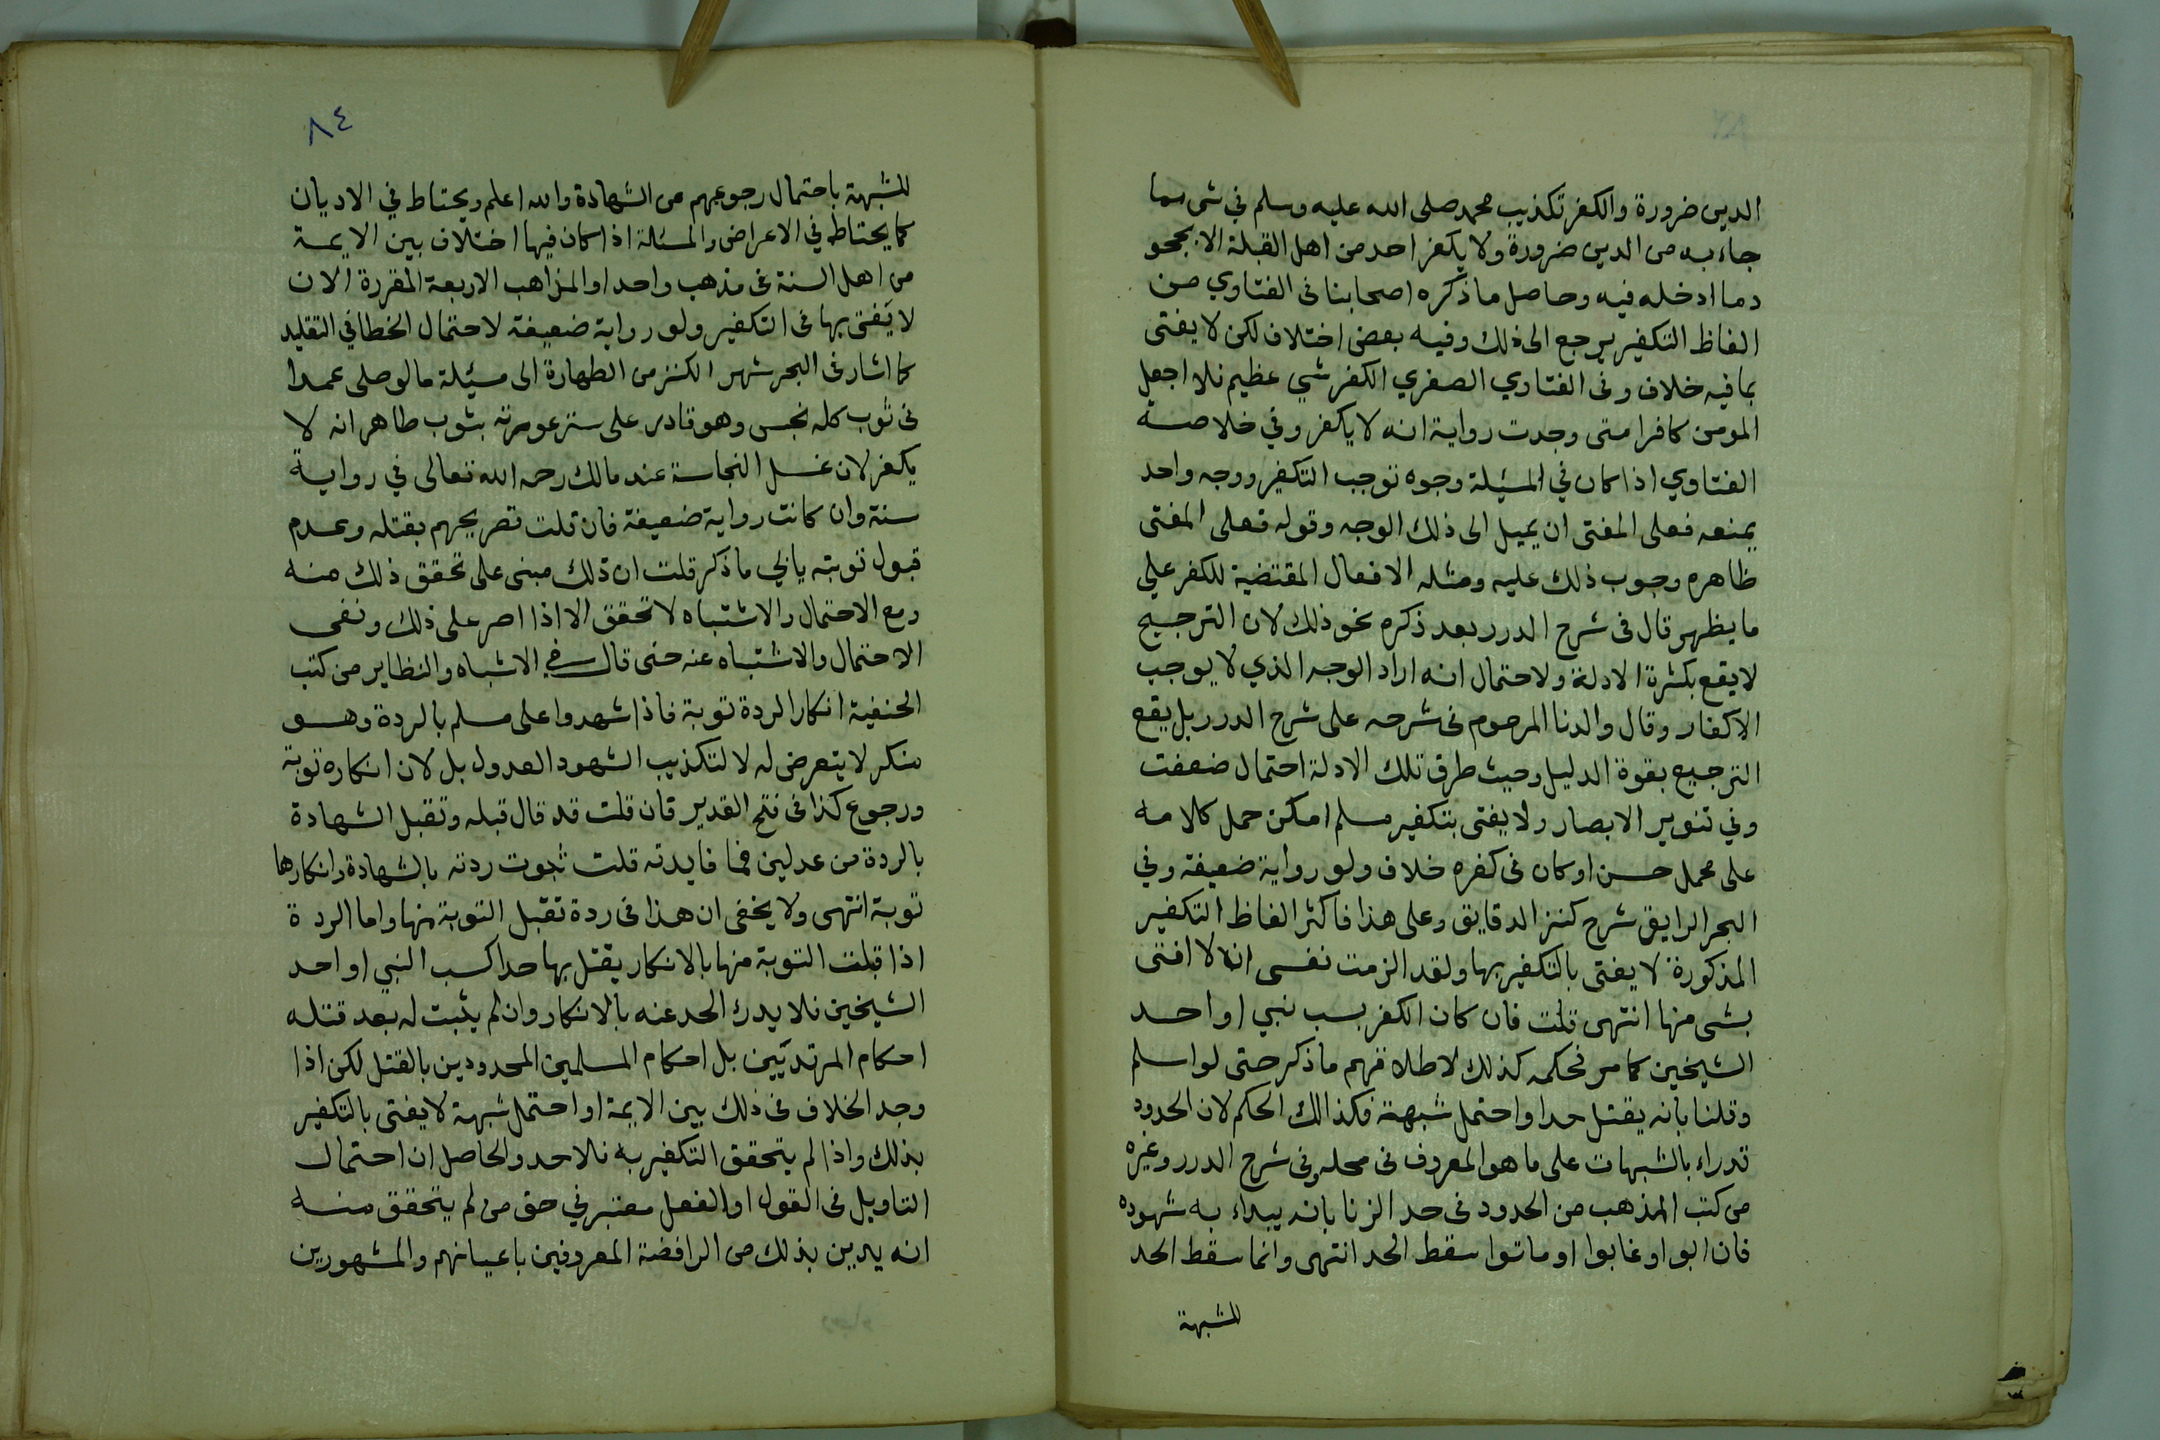 الدين ضرورة والكفر تكذيب محمد صلى الله عليه وسلم في شى مما
جاء به من الدين ضرورة ولا يكفر احد من اهل القبلة الا بجحو
د ما ادخله فيه وحاصل ما ذكره اصحابنا فى الفتاوي من
الفاظ التكفير يرجع الى ذلك وفيه بعض اختلاف لكن لا يفتى
بما فيه خلاف وفى الفتاوي الصغري الكفر شي عظيم فلا اجعل
المومن كافرا متى وجدت رواية انه لا يكفر وفي خلاصة
الفتاوي اذا كان في المسئلة وجوه توجب التكفير ووجه واحد
يمنعه فعلى المفتى ان يميل الى ذلك الوجه وقوله فعلى المفتى
ظاهره وجوب ذلك عليه ومثله الافعال المقتضية للكفر علي
ما يظهر قال فى شرح الدرر بعد ذكره نحو ذلك لان الترجيح
لا يقع بكثرة الادلة ولاحتمال انه اراد الوجه الذي لا يوجب
الاكفار وقال والدنا المرحوم فى شرحه على شرح الدرر بل يقع
الترجيح بقوة الدليل وحيث طرق تلك الادلة احتمال ضعفت
وفي تنوير الابصار ولا يفتى بتكفير مسلم امكن حمل كلامه
على محمل حسن او كان فى كفره خلاف ولو رواية ضعيفة وفي
البحر الرايق شرح كنز الدقايق وعلى هذا فاكثر الفاظ التكفير
المذكورة لا يفتى بالتكفير بها ولقد الزمت نفسى ان لا افتى
بشى منها انتهى قلت فان كان الكفر بسب نبي او احد
الشيخين كما مر فحكمه كذلك لاطلاقهم ما ذكر حتى لو اسلم
وقلنا بانه يقتل حدا واحتمل شبهة فكذالك الحكم لان الحدود
تدراء بالشبهات على ما هو المعروف فى محله وفى شرح الدرر وغيره
من كتب المذهب من الحدود فى حد الزنا بانه يبداء به شهوده
فان ابوا او غابوا او ماتوا سقط الحد انتهى وانما سقط الحد
للشبهة
٨٤
للشبهة باحتمال رجوعهم عن الشهادة والله اعلم ويحتاط في الاديان
كما يحتاط في الاعراض والمسئلة اذا كان فيها اختلاف بين الايمة
من اهل السنة فى مذهب واحد او المذاهب الاربعة المقررة الان
لا يفتى بها فى التكفير ولو رواية ضعيفة لاحتمال الخطا في التقليد
كما اشار فى البحر شهر الكنز من الطهارة الى مسئلة ما لو صلى عمدا
فى ثوب كله نجس وهو قادر على ستر عورته بثوب طاهر انه لا
يكفر لان غسل النجاسة عند مالك رحمه الله تعالى في رواية
سنة وان كانت رواية ضعيفة فان قلت تصريحهم بقتله وعدم
قبول توبته يابي ما ذكر قلت ان ذلك مبنى على تحقق ذلك منه
ومع الاحتمال والاشتباه لا تحقق الا اذا اصر على ذلك ونفى
الاحتمال والاشتباه عنه حتى قال في الاشباه والنظاير من كتب
الحنفية انكار الردة توبة فاذا شهدوا على مسلم بالردة وهو
منكر لا يتعرض له لا لتكذيب الشهود العدول بل لان انكاره توبة
ورجوع كذا فى فتح القدير فان قلت قد قال قبله وتقبل الشهادة
بالردة من عدلين فما فايدته قلت ثبوت ردته بالشهادة وانكارها
توبة انتهى ولا يخفى ان هذا فى ردة تقبل التوبة منها واما الردة
اذا قبلت التوبة منها بالانكار يقتل بها حدا كسب النبي او احد
الشيخين فلا يدرك الحد عنه بالانكار وان لم يثبت له بعد قتله
احكام المرتديين بل احكام المسلمين المحدودين بالقتل لكن اذا
وجد الخلاف فى ذلك بين الايمة او احتمل شبهة لا يفتى بالتكفير
بذلك واذا لم يتحقق التكفير به فلا حد والحاصل ان احتمال
التاويل فى القول او الفعل معتبر في حق من لم يتحقق منه
انه يدين بذلك من الرافضة المعروفين باعيانهم والمشهورين